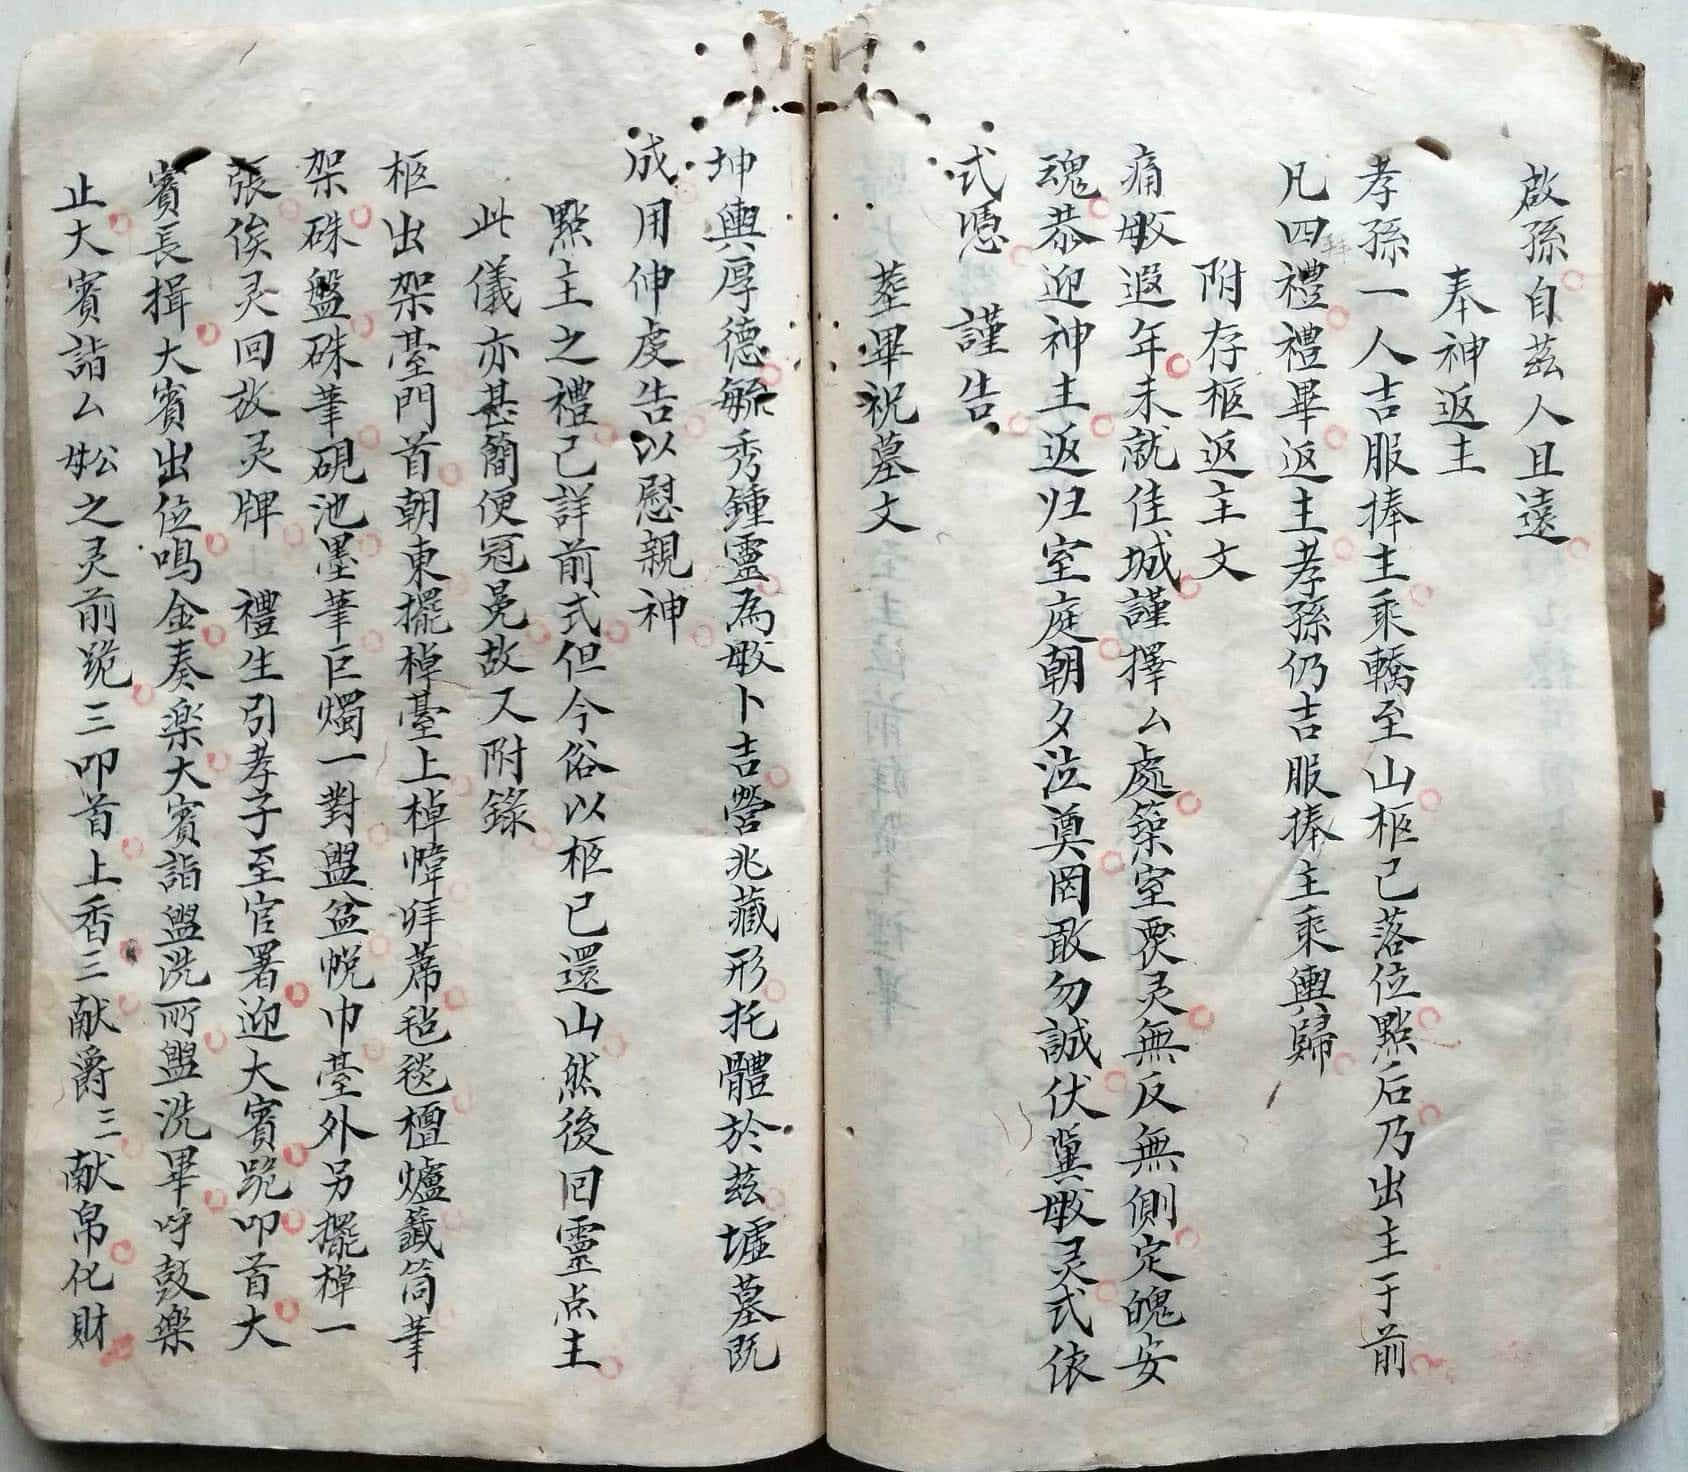 啟孫自茲人且遠
奉神返主
孝孫一人吉服捧主乘轎至山柩已落位點后乃出主于前
凡四禮禮畢返主孝孫仍吉服捧主乘輿歸
附存柩返主文
痛 遐年未就佳城謹擇厶處築室 灵無反無側定魄安
魂恭迎神主返归室庭朝夕泣奠罔敢勿誠伏冀 灵式依
式憑 謹告
葬畢祝墓文
坤輿厚德毓秀鍾靈為 卜吉營兆藏形托體於茲墟墓既
成用伸虔告以慰親神
點主之禮已詳前式但今俗以柩已還山然後回靈点主
此儀亦甚簡便冠冕故又附錄
柩出架臺門首朝東擺棹臺上棹幃拜蓆毡毯檀爐籖筒筆
架硃盤硃筆硯池墨筆巨燭一對盥盆帨巾臺外另擺棹一
張俟灵回放灵牌 禮生引孝子至官署迎大賓跪叩首大
賓長揖大賓出位鳴金奏楽大賓詣盥洗所盥洗畢呼鼓楽
止大賓詣厶 之灵前跪三叩首上香三献爵三献帛化財